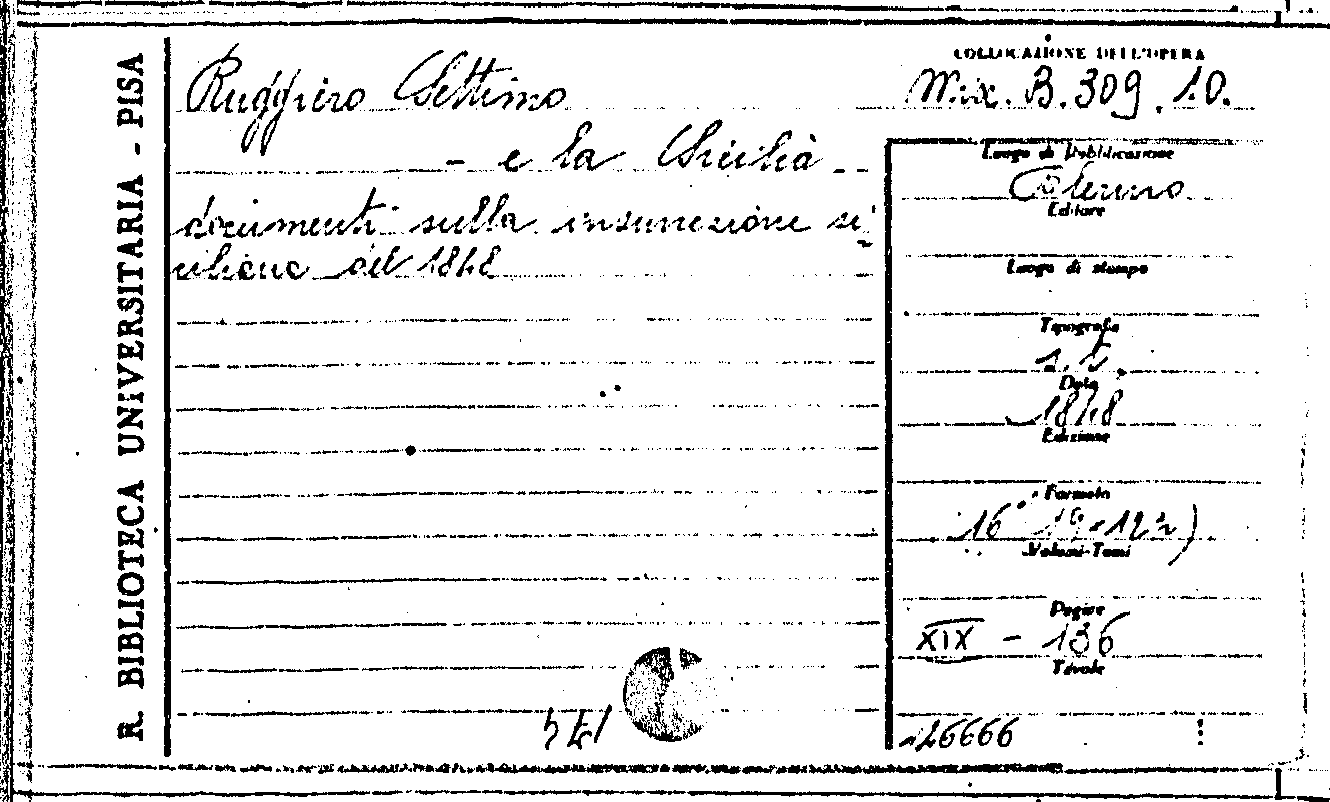 R. BIBLIOTECA UNIVERSITARIA - PISA
Ruggiero Settimo
- e la Sicilia
documenti sulla insurrezione si-
ciliana del 1848
COLLOCAZIONE DELL'OPERA
Misc. B. 309. 10.
Luogo di Pubblicazione
Palermo
Editore
Luogo di stampa
Tipografia
s.t.
Data
1848
Edizione
Formato
16°
Volumi-Tomi
Pagine
XIX - 136
Tavole
26666